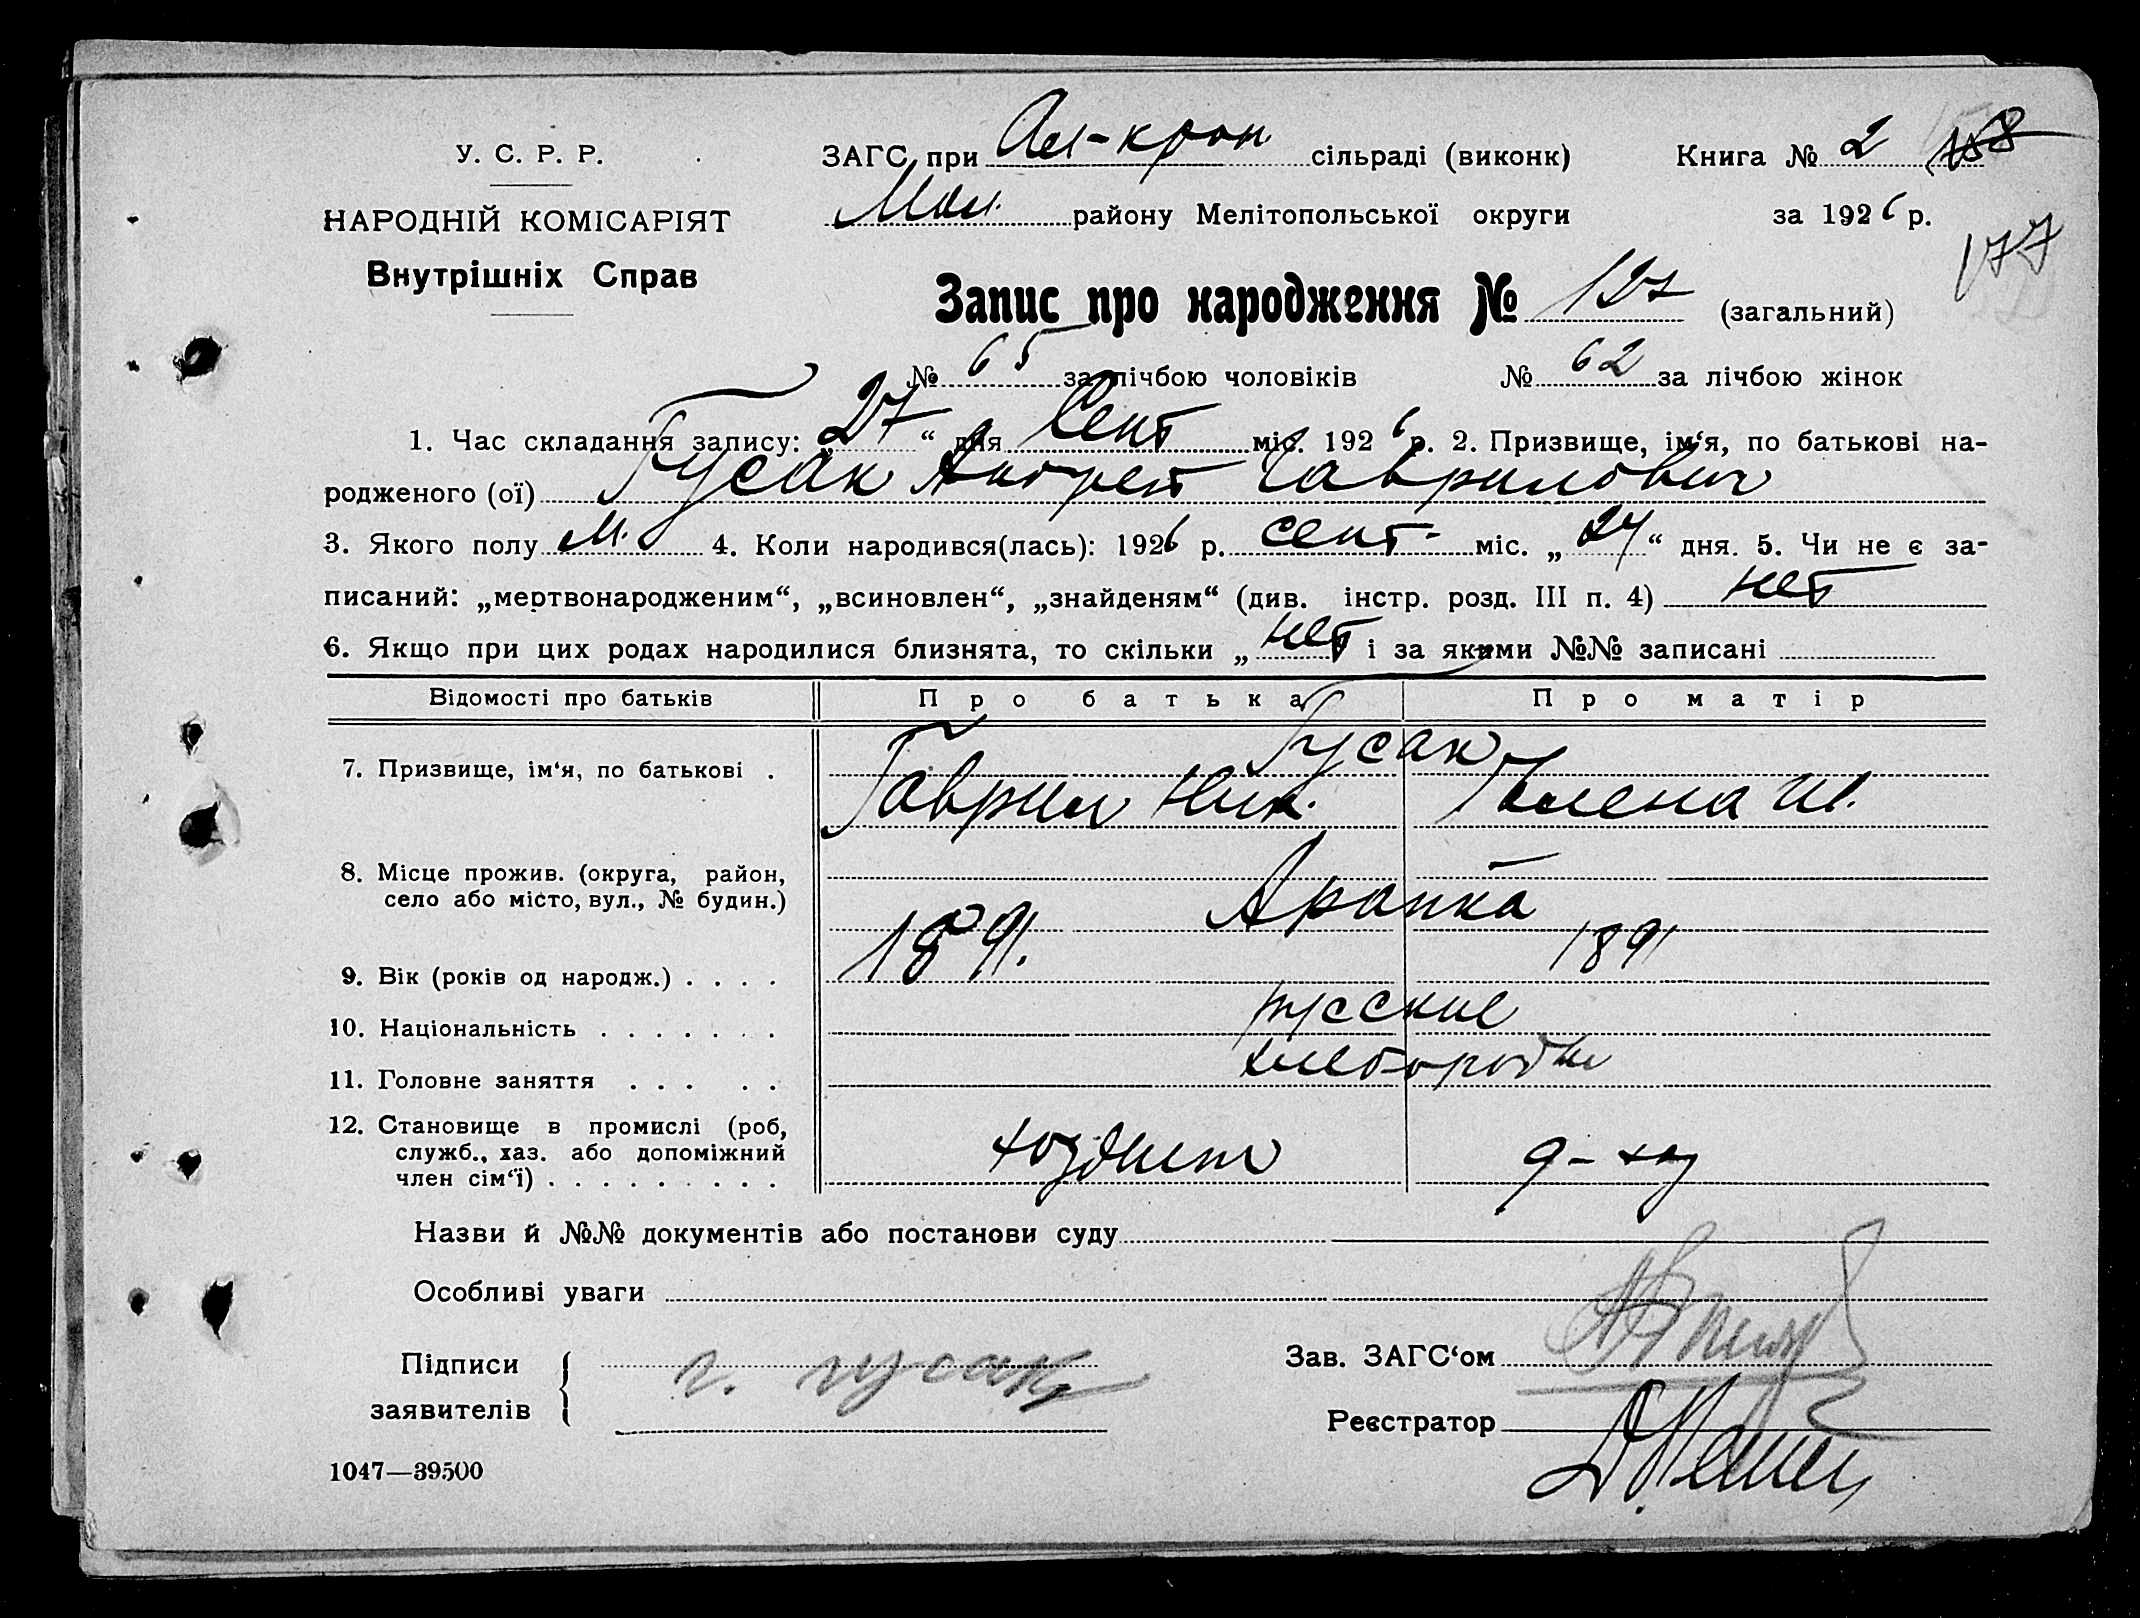 У. С. Р. Р.
НАРОДНІЙ КОМІСАРІЯТ
Внутрішніх Справ
ЗАГС при Ам-крон сільраді (виконк) Книга № 2 158
Мел. району Мелітопольської округи за 1926 р.
177
Запис про народження № 127 (загальний)
№ 65 за лічбою чоловіків № 62 за лічбою жінок
1. Час складання запису: „27“ дня Сент міс. 1926 р. 2. Призвище, ім‘я, по батькові на-
родженого (ої) Гусак Андрей Гаврилович
3. Якого полу М. 4. Коли народився(лась): 1926 р. сент- міс. „24“ дня. 5. Чи не є за-
писаний: „мертвонародженим“, „всиновлен“, „знайденям“ (див. інстр. розд. III п. 4) нет
6. Якщо при цих родах народилися близнята, то скільки „нет“ і за якими №№ записані
Відомості про батьків Про батька Про матір
Гусак
7. Призвище, ім‘я, по батькові . Гаврил Ник. Елена
8. Місце прожив. (округа, район,
село або місто, вул., № будин.)
9. Вік (років од народж.) . . . . 1891. 1891
10. Національність . . . . . . . русские
11. Головне заняття . . . . . хлебороды
12. Становище в промислі (роб,
служб., хаз. або допоміжний
член сім‘ї) . . . . . . . . .
Назви й №№ документів або постанови суду
Особливі уваги
Підписи
заявителів
г. гусак
Зав. ЗАГС‘ом
Реєстратор
1047—39500